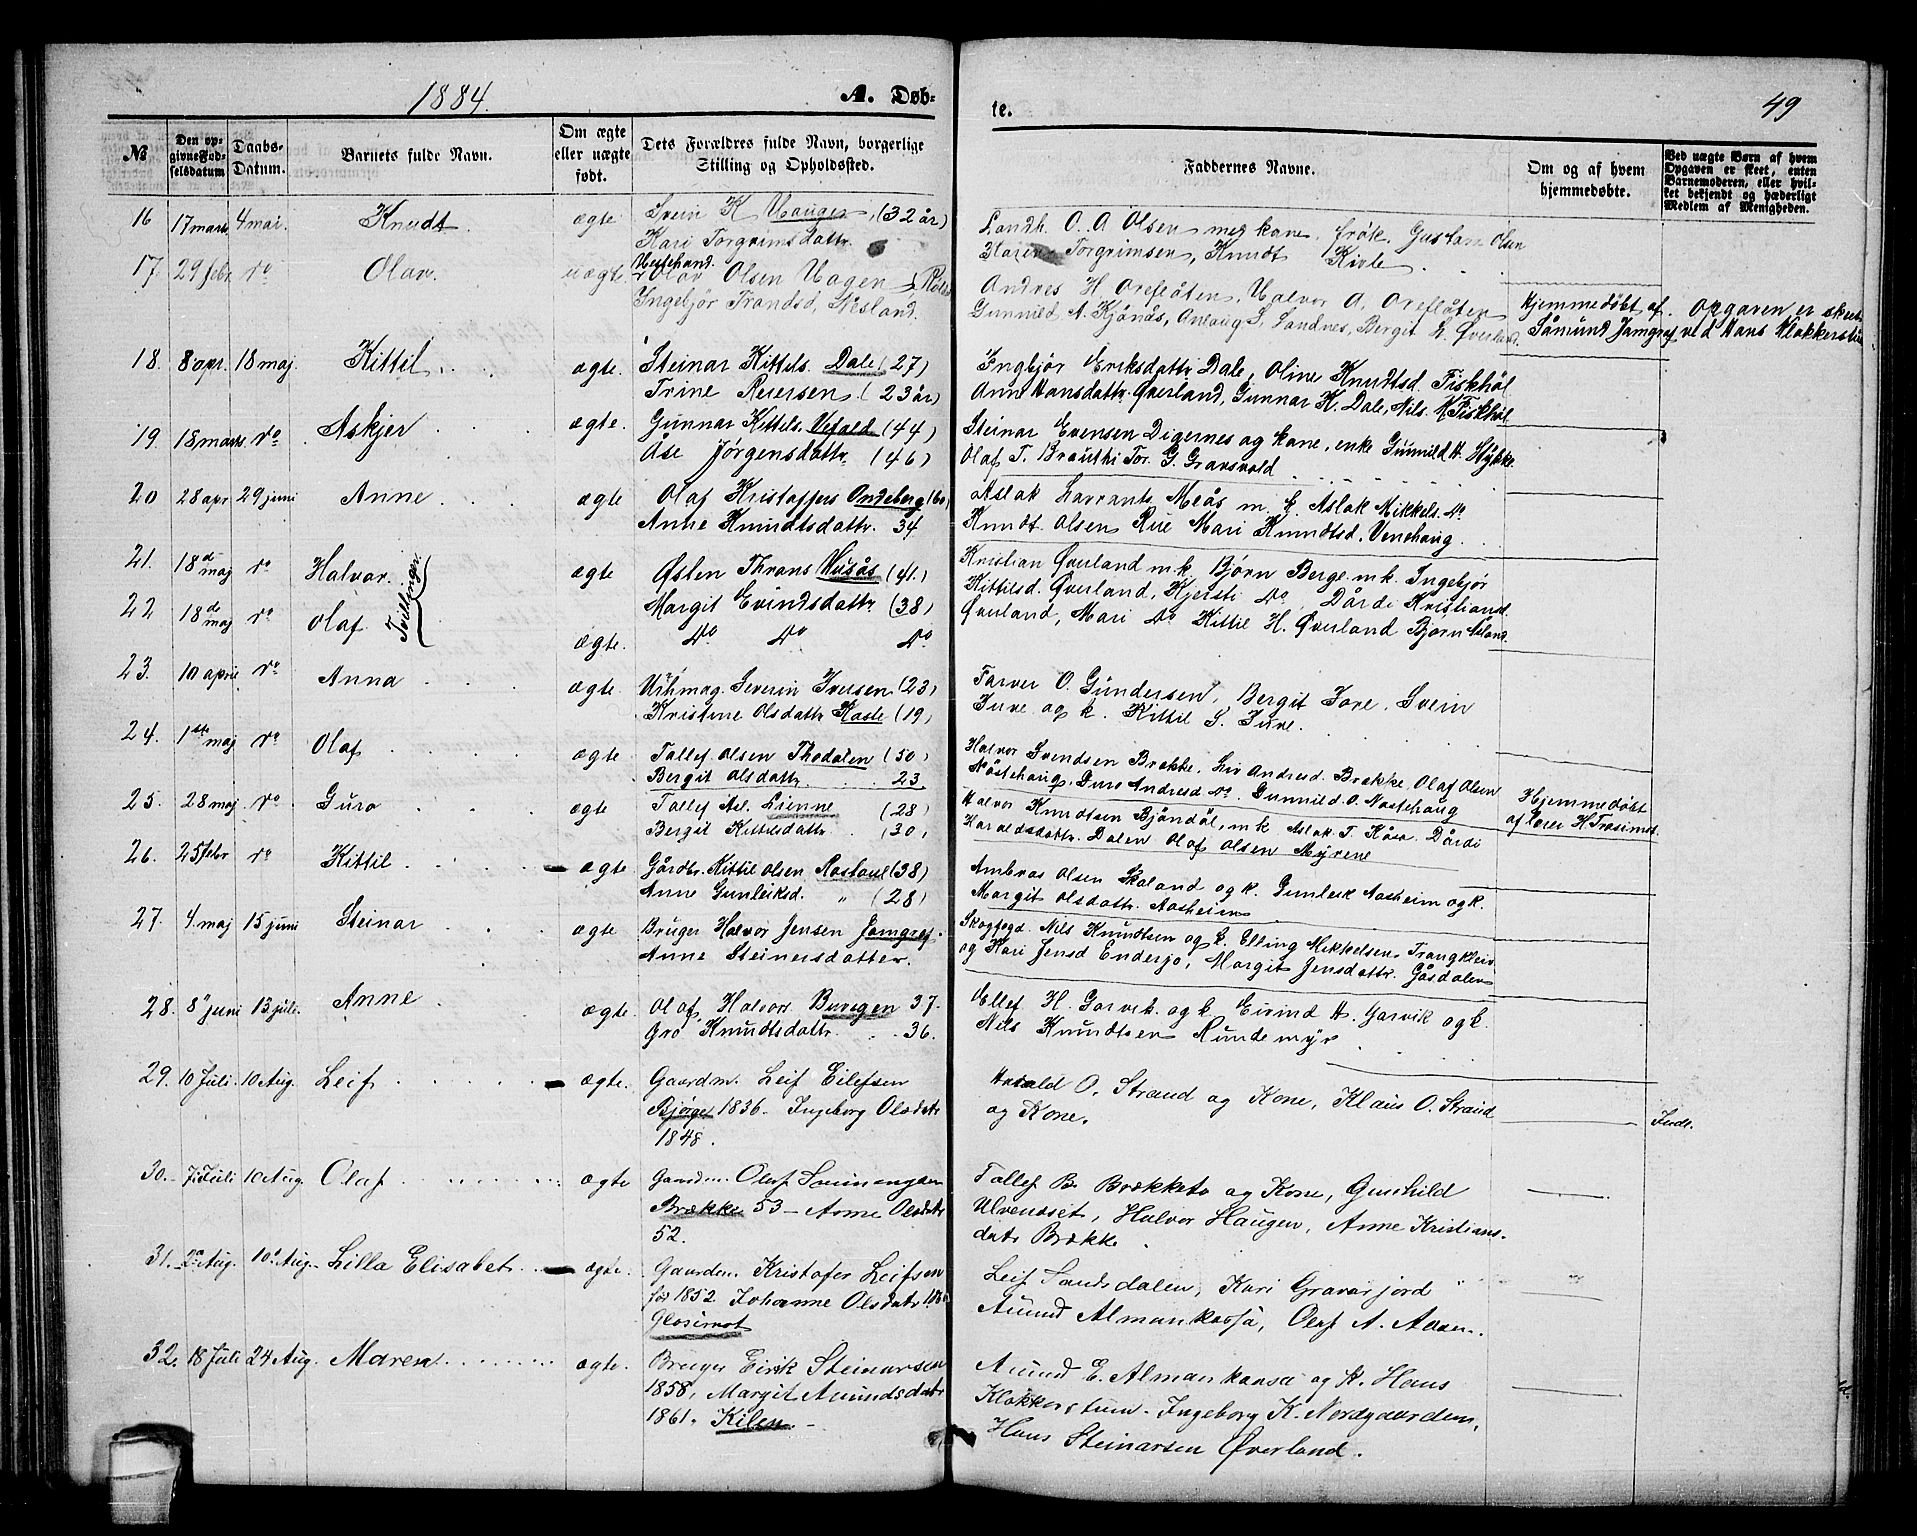 1884.
A. Døb-
te.
49
№
Den op-
givne Fød-
selsdatum
Daabs-
Datum.
Barnets fulde Navn.
Om ægte
eller uægte
født.
Dets Forældres fulde Navn, borgerlige
Stilling og Opholdssted.
Faddernes Navne.
Om og af hvem
hjemmedøbte.
Ved uægte Børn af hvem
Opgaven er skeet, enten
Barnemoderen, eller hvil-
ket bekjendt og hæderligt
Medlem af Menigheden.
16 17 marts 4 mai. Knudt ægte Svein K Haugen (32 år)
Kari Torgrimsdattr.
Landh. O. A Olsen med kane, frøk. Gustava Olsen
Torgrimsen, Knudt Kivle
17. 29 febr do Olav uægte Olav Olsen Hagen
Ingebjør Trondsd. Nesland.
Andres H Orefløten, Halvor O. Orefløten
Gunnild A. Kjønås, Anlaug S. Sandnes, Bergit L. Øverland.
Hjemmedøbt af
Såmund Jamgraf
Opgaven er skeet
ved Hans Klokkerstu
18. 8 apr. 18 maj Kittil ægte. Steinar Kittels. Dale (27)
Trine Reiersen (23 år)
Ingbjør Eriksdattr Dale, Oline Knudtsd. Fiskhøl
Anne Hansdattr. Øverland, Gunnar K. Dale, Nils K Fiskhøl
19. 18 marts do Askjer ægte. Gunnar Kittels. Vefald (44)
Åse Jørgensdattr. (46)
Steinar Evensen Digernes og kane, enke Gunnild H. Hykke
Olaf T. Brauthi Tor. G. Gravsvold
20 28 apr 29 juni Anne ægte Olaf Kristoffers Ondeberg (60)
Anne Knudtsdattr. 34
Aslak Lavrants. Meås m. k. Aslak Mikkels. do
Knudt Olsen Rue Mari Knudtsd. Venehaug.
21. 18de maj do Halvor. Tvillinger ægte Østen Thrans Husås (41.)
Margit Evindsdattr (38)
Kristian Øverland m.k. Bjørn Berge. m.k. Ingebjør
Kittilsd. Øverland, Kjersti do Dårdi Kristiansd.
22 18de maj do Olaf ægte. do do do
Øverland, Mari do Kittil H. Øverland Bjørn
23. 10 april do Anna ægte Severin Iversen (23)
Kristine Olsdattr Kaste (19)
Farver O. Gundersen, Bergit Jore, Svein
Juve og k. Kittil S. Juve.
24. 1ste maj do Olaf ægte Tallef Olsen Thodalen (50)
Bergit Olsdattr. 23
Halvor Svendsen Brække. Liv Andresd. Brække. Olaf Olsen
Nåstehaug. Guro Andresd do. Gunnild O. Nåstehaug
25. 28 maj do Guro ægte Tallef Asl. Lienne (28)
Bergit Kittilsdattr. (30)
Halvor Knudtsen Bjåndøl, m.k. Aslak T. Kåsa. Dårdi
Haraldsdattr. Dalen Olaf Olsen Myrene
Hjemmedøbt
af Lærer H Trosimot
26. 25 febr do Kittil ægte Gårdbr. Kittil Olsen Rostaul (38)
Anne Gunleiksd. " (28)
Ambros Olsen Skaland og k. Gunleik Aasheim og k.
Margit Olsdattr. Aasheim
27. 4. maj 15 juni Steinar ægte Bruger Halvor Jensen Jamgraf.
Anne Steinersdatter.
Skogfogd. Nils Knudtsen og k. Elling Mikkelsen Trangkleiv
og Kari Jensd Enderjo, Margit Jensdattr. Gåsdalen
28. 8de juni 13 juli. Anne ægte. Olaf Halvor Buvegen 37.
Gro Knudtsdattr. 36.
Ellef H. Garvik og k. Eivind H. Garvik og k.
Nils Knudtsen Rundemyr
29. 10 Juli. 10 Aug. Leif ægte. Gaardm. Leif Eilefsen
Bjørge 1836. Ingeborg Olsdatr
1848.
Harald O. Strand og Kone, Klaus O. Strand
og Kone.
Indl.
30. 7. Juli 10 Aug. Olaf ægte Gaardm. Olaf
Brække 53 – Anne Olsdatr
52.
Tallef B. Brækketo og Kone, Gunhild
Ulvenæset, Halvor Haugen, Anne Kristians-
datr Brække.
31. 2 Aug. 10 Aug. Lilla Elisabet ægte. Gaardm. Kristofer Leifsen
fød 1852. Johanne Olsdatr
Glosimot
Leif Sandsdalen, Kari Gravarjord
Amund Almankaasa, Olaf A. Aasen.
32. 18 Juli 24 Aug. Maren ægte. Bruger Eirik Steinarsen
1858, Margit Amundsdatr
1861. Kilen. –
Amund E. Almankaasa og K. Hans
Klokkerstuen. Ingeborg K. Nordgaarden,
Hans Steinarsen Øverland.